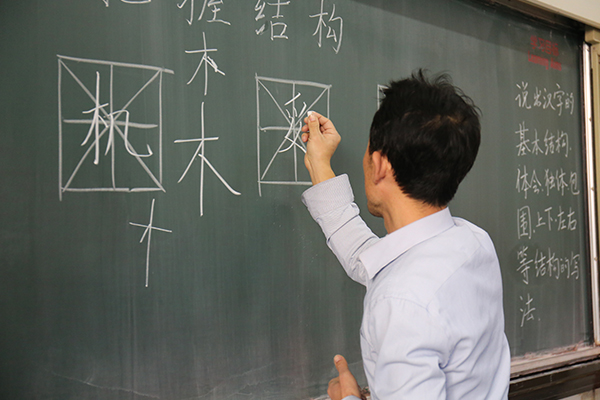 握结构
木
木
说出汉字的
基本结构.
体会.独体.包
围.上下.左右
等结构的写
法.